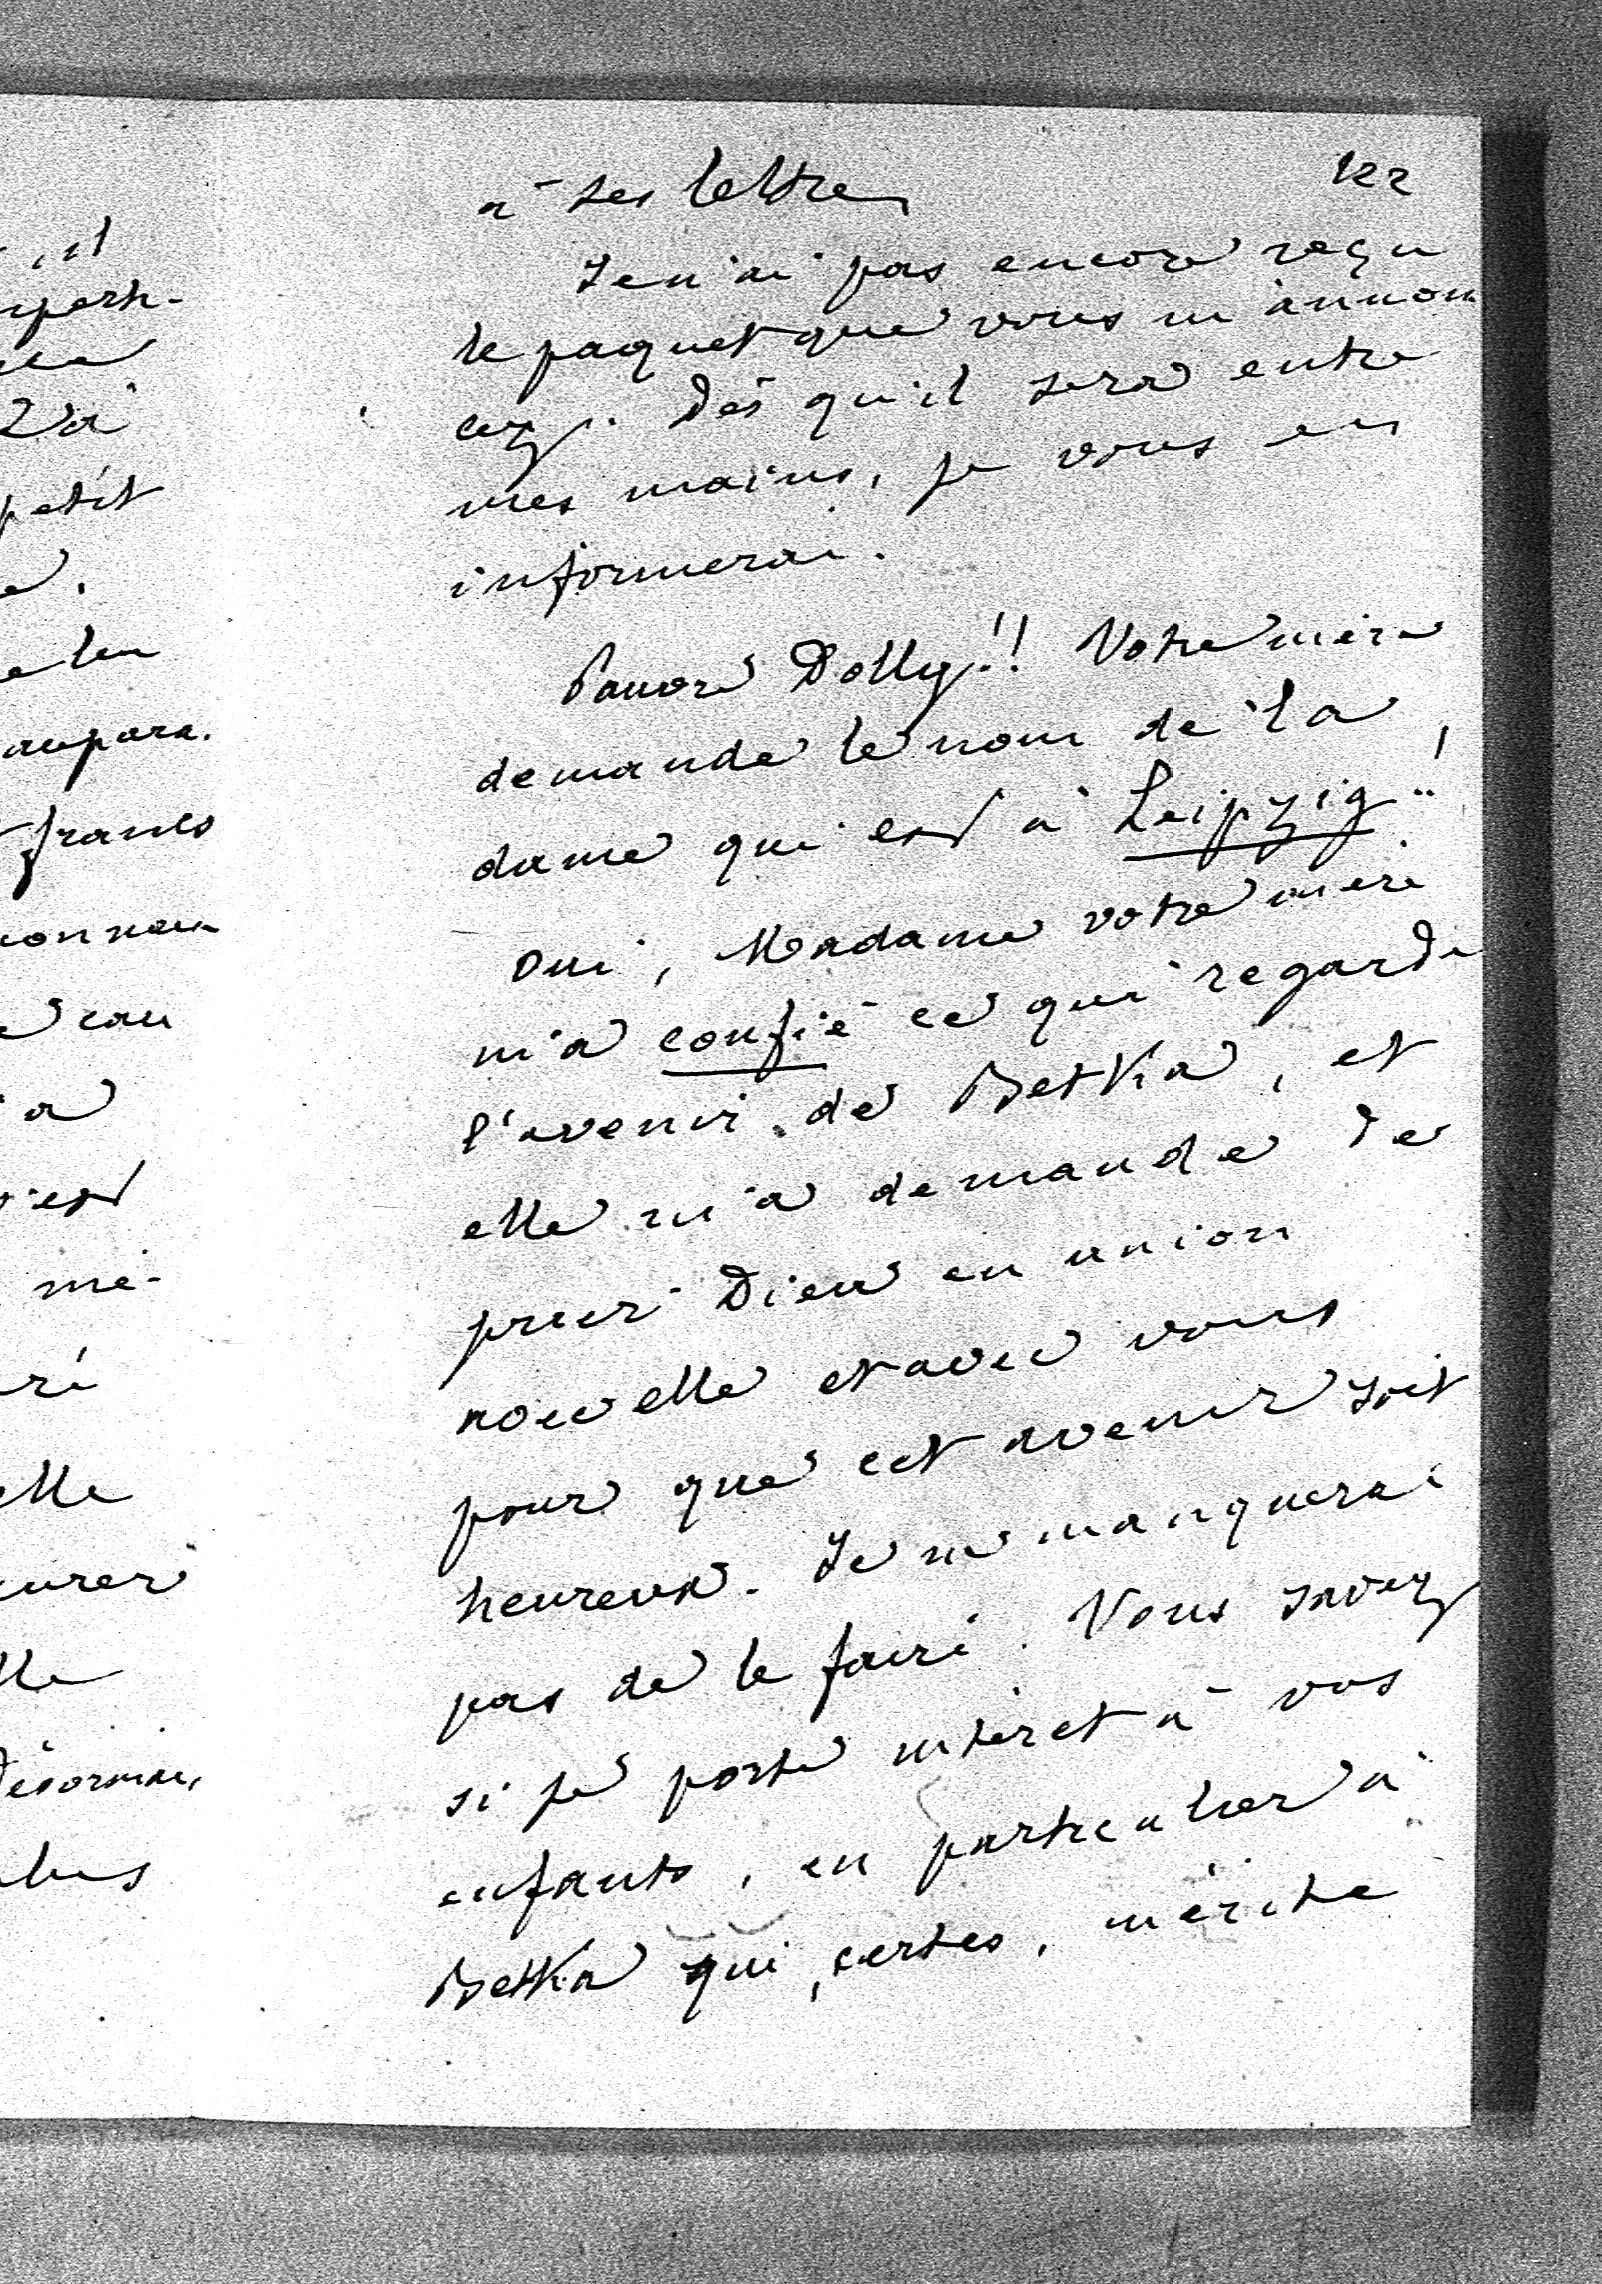 122
à ses lettres
Je n'ai pas encore reçu
le paquet que vous m'annon
cez. Dès qu'il sera entre
mes mains, je vous en
informerai.
Pauvre Dolly!! Votre mère
demande le nom de la
dame qui est à Leipzig!!
Oui, Madame votre mère
m'a confié ce qui regarde
l'avenir de Betka, et
elle m'a demandé de
prier Dieu en union
avec elle et avec vous
pour que cet avenir soit
heureux. Je ne manquerai
pas de le faire. Vous savez
si je porte intérêt à vos
enfants, en particulier à
Betka qui, certes, mérite
il
petit
aupara.
francs
eau
a
mé-
elle